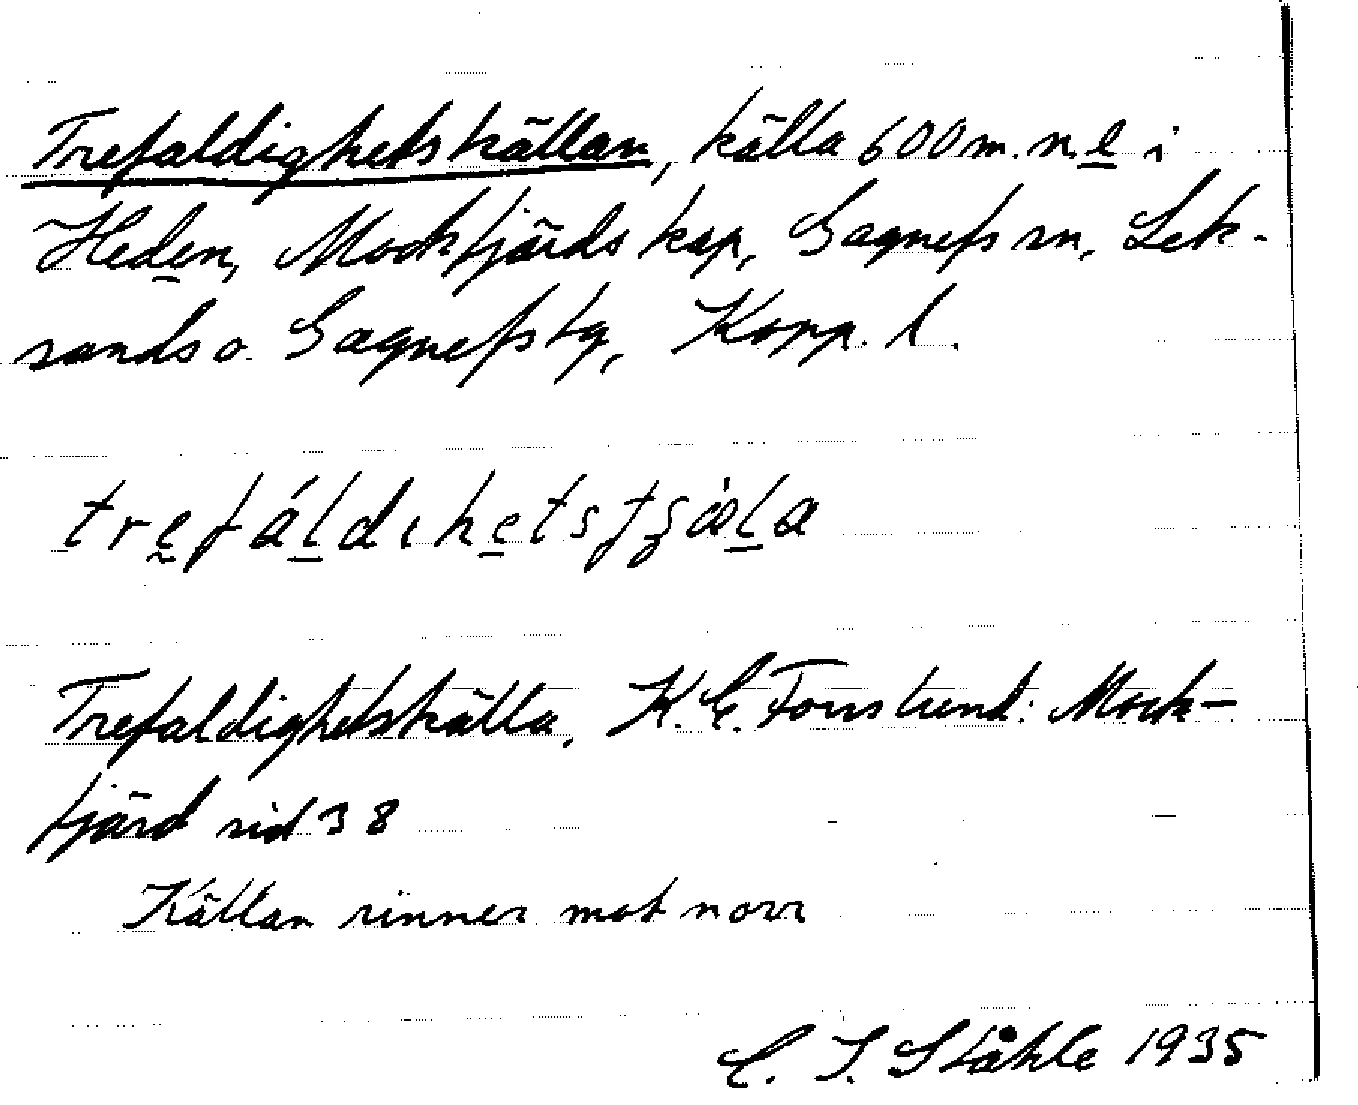 Trefaldighetskällan, källa 600 m. n. e i
Heden, Mockfjärds kap, Gagnefs sn, Lek-
sands o. Gagnefs tg, Kopp. l.
trefáldıhetsfʒæ̀la
Trefaldighetskälla. K. E. Forslund: Mock-
fjärd sid 38
Källan rinner mot norr
C. I. Ståhle 1935